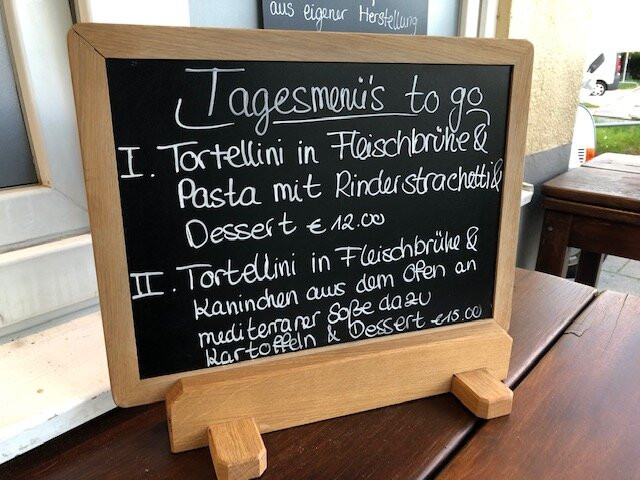 aus eigener Herstellung
Tagesmenü's to go
I. Tortellini in Fleischbrühe &
Pasta mit Rinderstrachetti &
Dessert € 12.00
II. Tortellini in Fleischbrühe &
Kaninchen aus dem Ofen an
mediterraner Soße dazu
Kartoffeln & Dessert €15.00